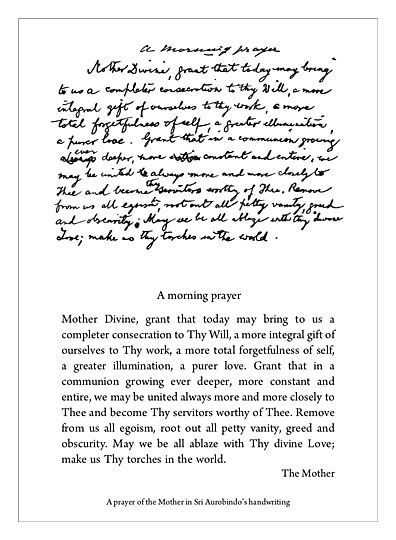 a morning prayer
Mother Divine, grant that today may bring
to us a completer consecration to thy Will, a more
integral gift of ourselves to thy work, a more
total forgetfulness of self, a greater illumination,
a purer love. Grant that in a communion growing
ever
deeper, more constant and entire, we
may be united always more and more closely to
Thee and become Thy servitors worthy of Thee. Remove
from us all egoism, root out all petty vanity, greed
and obscurity. May we be all ablaze with thy divine
Love; make us thy torches in the world.
A morning prayer
Mother Divine, grant that today may bring to us a
completer consecration to Thy Will, a more integral gift of
ourselves to Thy work, a more total forgetfulness of self,
a greater illumination, a purer love. Grant that in a
communion growing ever deeper, more constant and
entire, we may be united always more and more closely to
Thee and become Thy servitors worthy of Thee. Remove
from us all egoism, root out all petty vanity, greed and
obscurity. May we be all ablaze with Thy divine Love;
make us Thy torches in the world.
The Mother
A prayer of the Mother in Sri Aurobindo's handwriting